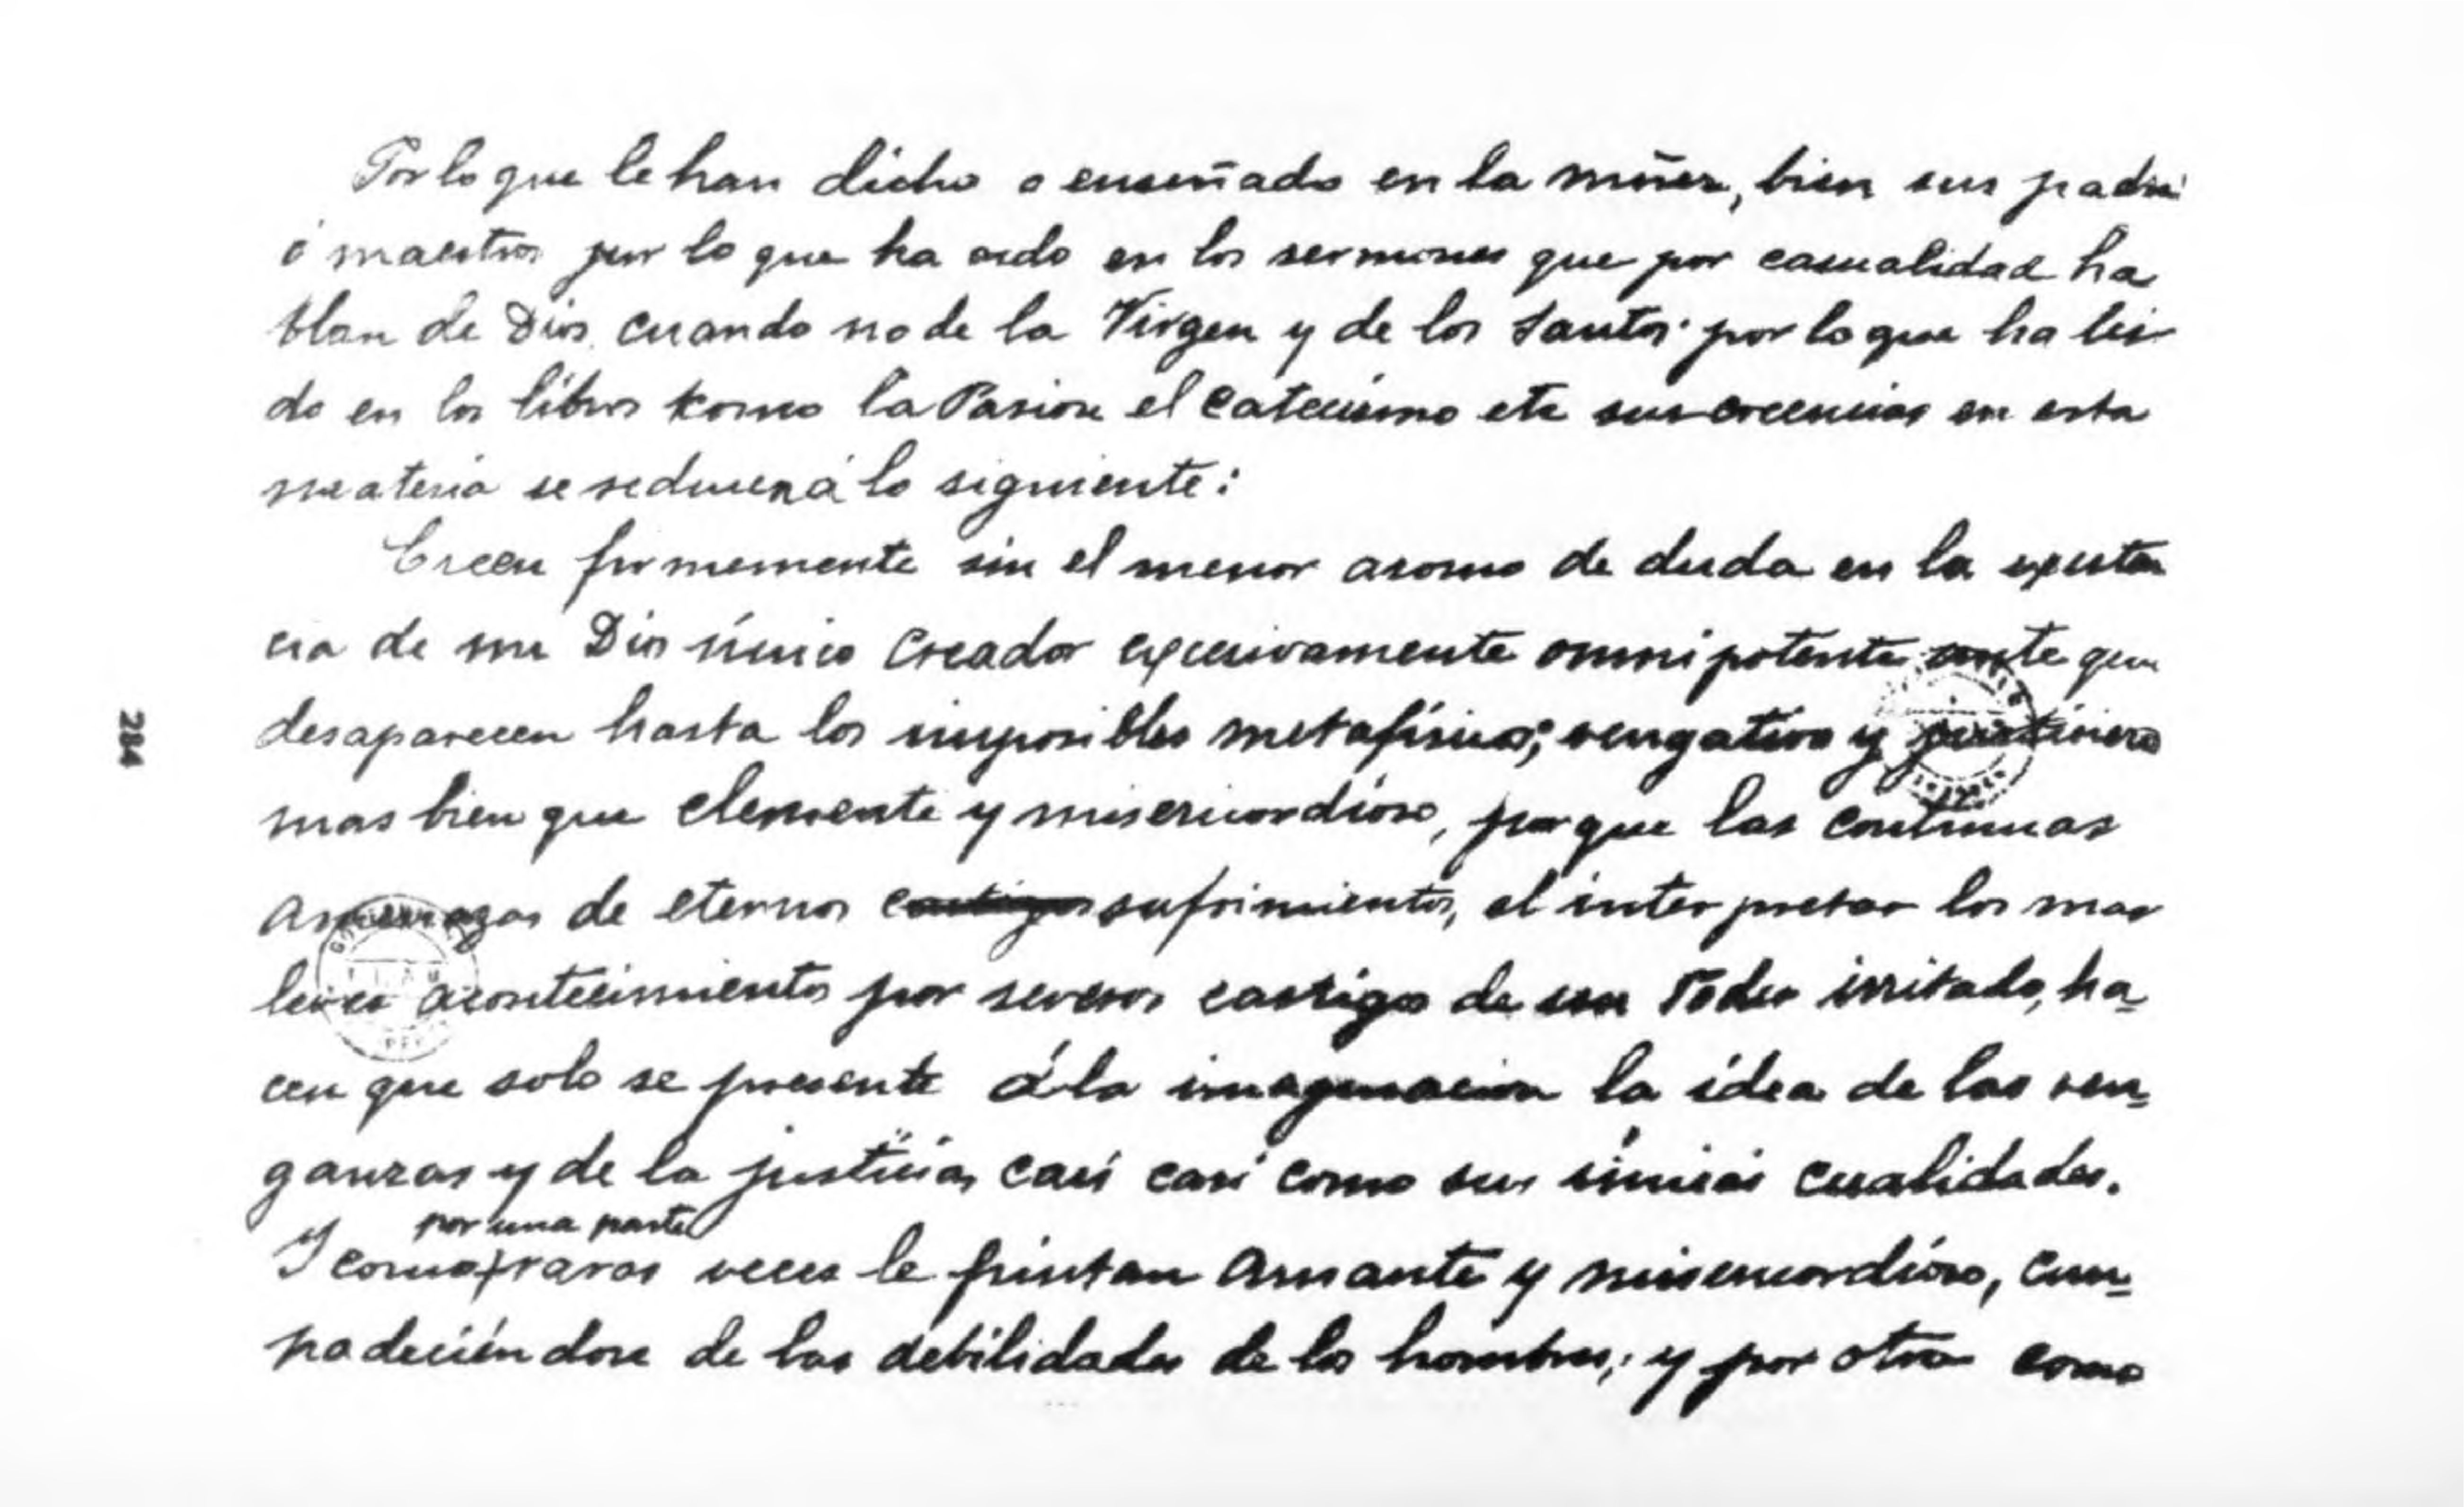 Por lo que le han dicho o enseñado en la niñez, bien sus padres
ó maestros por lo que ha oido en los sermones que por casualidad ha
blan de Dios cuando no de la Virgen y de los Santos: por lo que ha lei-
do en los libros komo la Pasion el catecismo etc sus creencias en esta
materia se reducen á lo siguiente:
Creen firmemente sin el menor asomo de duda en la existen
cia de un Dios único Creador excesivamente omnipotente ante quien
desaparecen hasta los imposibles metafísicos; vengativo y justiciero
mas bien que clemente y misericordioso, porque las continuas
amenazas de eternos castigos sufrimientos, el interpretar los mas
leves acontecimientos por severos castigos de un Todo irritado, ha-
cen que solo se presente á la imaginacion la idea de las ven-
ganzas y de la justicia, casi casi como sus únicas cualidades.
por una parte
Y como raras veces le pintan amante y misericordioso, com-
padeciéndose de las debilidades de los hombres; y por otra como
284